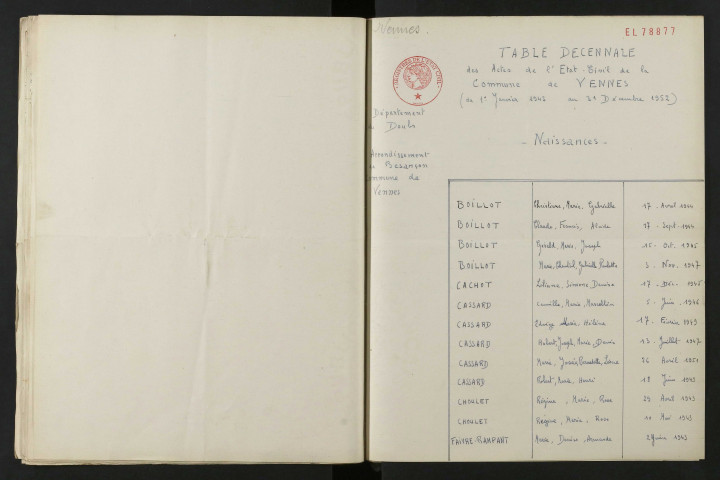 Vennes.
EL78877
TABLE DECENNALE
des Actes de l'Etat-Civil de la
Commune de VENNES
(du 1er Janvier 1943 au 31 Décembre 1952)
REGISTRES DE L'ETAT CIVIL
Département
Doubs
Arrondissement
Besançon
ommune de
Vennes
- Naissances -
BOILLOT Christiane, Marie, Gabrielle 17 - Avril 1944
BOILLOT Claude, Francis, 17 - Sept. 1944
BOILLOT Gérald, Marie, Joseph 15 - Oct. 1945
BOILLOT Marie, Chantal, Gabrielle 3 - Nov. 1947
CACHOT Liliane, Simone, Denise 17 - Déc. 1945
CASSARD Camille, Marie, 5 - Juin 1946
CASSARD Marie, Hélène 17 - Février 1949
CASSARD Hubert, Joseph, Marie, 13 - Juillet 1947
CASSARD Marie, Bernadette, 26 Avril 1951
CASSARD Robert, Marie, Henri 18 Juin 1943
CHOULET Régine, Marie, Rose 29 Avril 1943
CHOULET Régine, Marie, Rose 10 Mai 1943
FAIVRE-RAMPANT Denise, 1943